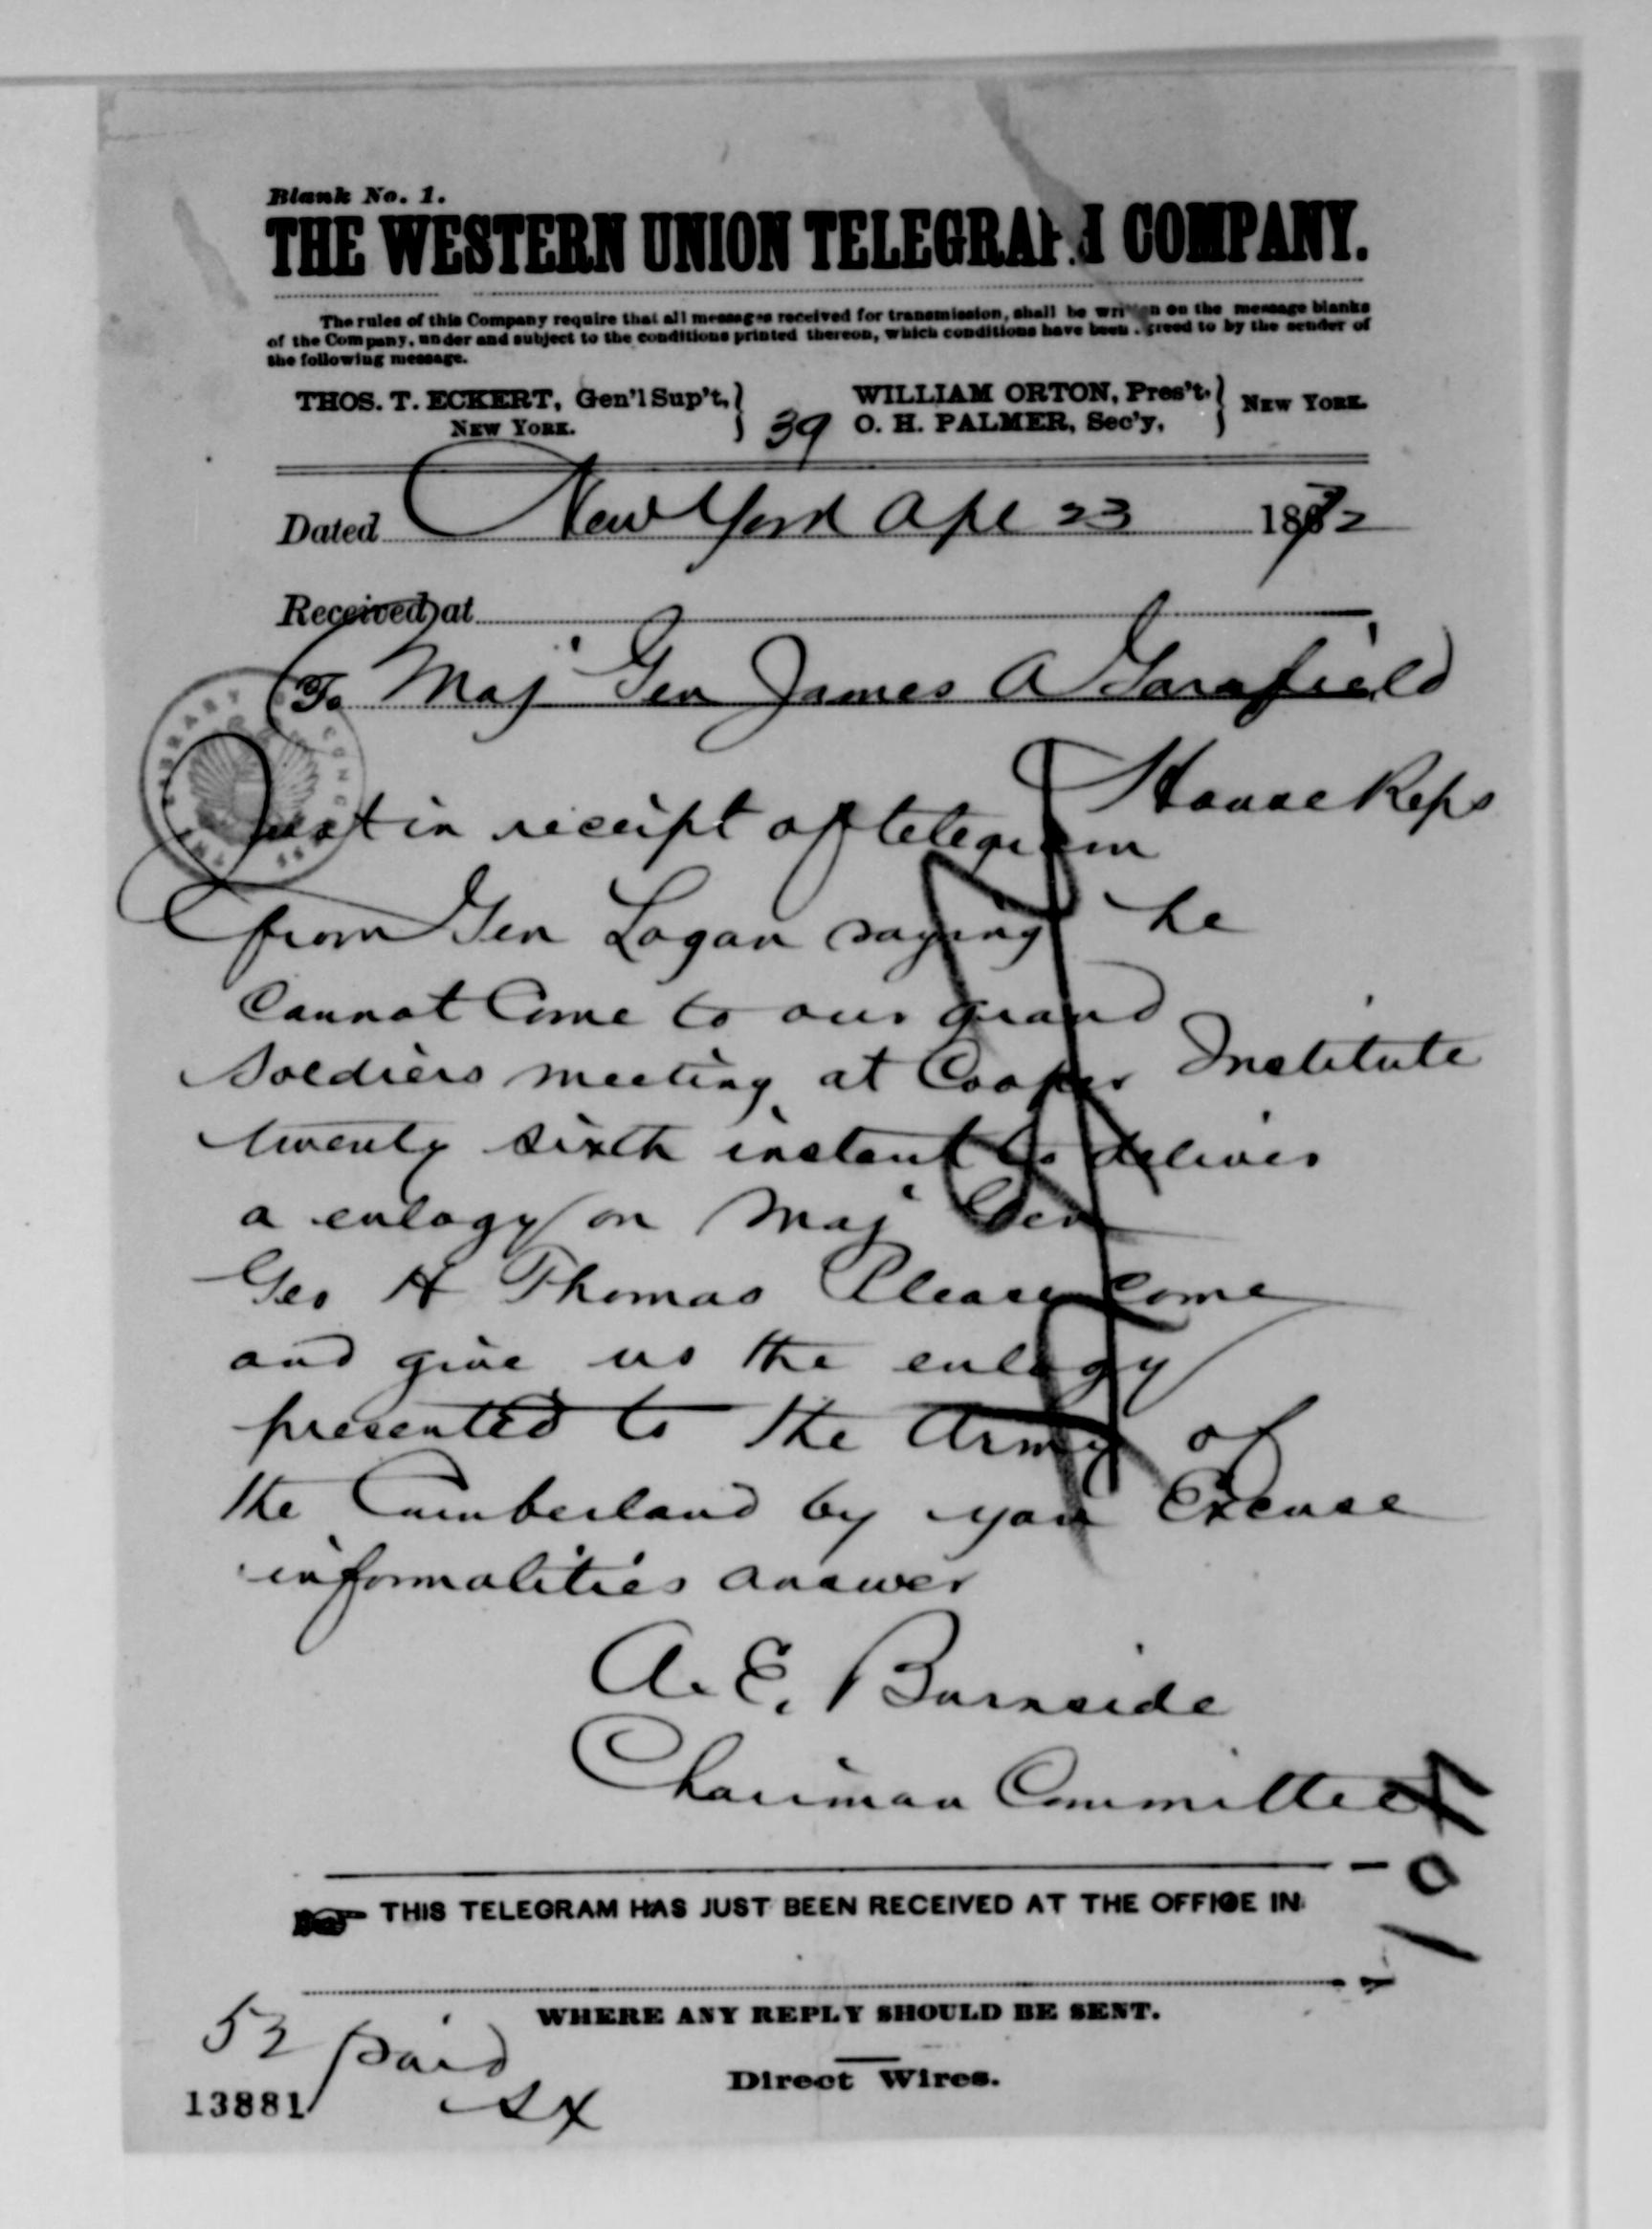 Blank No. 1.
THE WESTERN UNION TELEGRAPH COMPANY.
The rules of this Company require that all messages received for transmission, shall be written on the message blanks
of the Company, under and subject to the conditions printed thereon, which conditions have been agreed to by the sender of
the following message.
THOS. T. ECKERT, Gen'l Sup't, NEW YORK. 39 WILLIAM ORTON, Pres't. O. H. PALMER, Sec'y, NEW YORK.
Dated New York Apl 23 1872
Received at
To Maj Gen James A Garafield
House Reps
Just in receipt of telegram
from Gen Logan saying he
Cannot Come to our grand
Soldiers meeting at Cooper Institute
twenty sixth instant to deliver
a eulogy on Maj Gen
Geo H Thomas Please come
and give us the eulogy
presented to the Army of
the Cumberland by you Excuse
informalities answer
A. E. Burnside
Chairman Committee
THIS TELEGRAM HAS JUST BEEN RECEIVED AT THE OFFICE IN
WHERE ANY REPLY SHOULD BE SENT.
52 paid
Direct Wires.
13881
LIBRARY OF CONGRESS